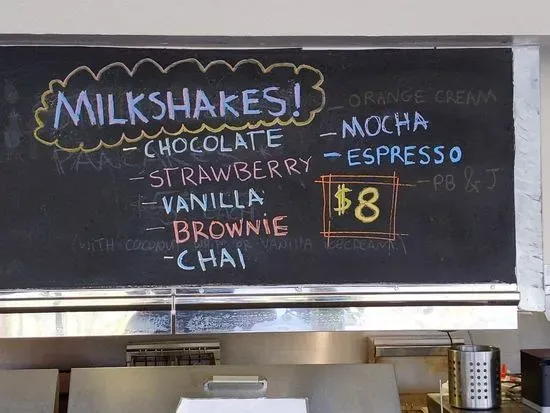 MILKSHAKES!
- CHOCOLATE
- STRAWBERRY
- VANILLA
- BROWNIE
- CHAI
- ORANGE CREAM
- MOCHA
- ESPRESSO
- PB & J
$8
(WITH COCONUT OR VANILLA ICECREAM)